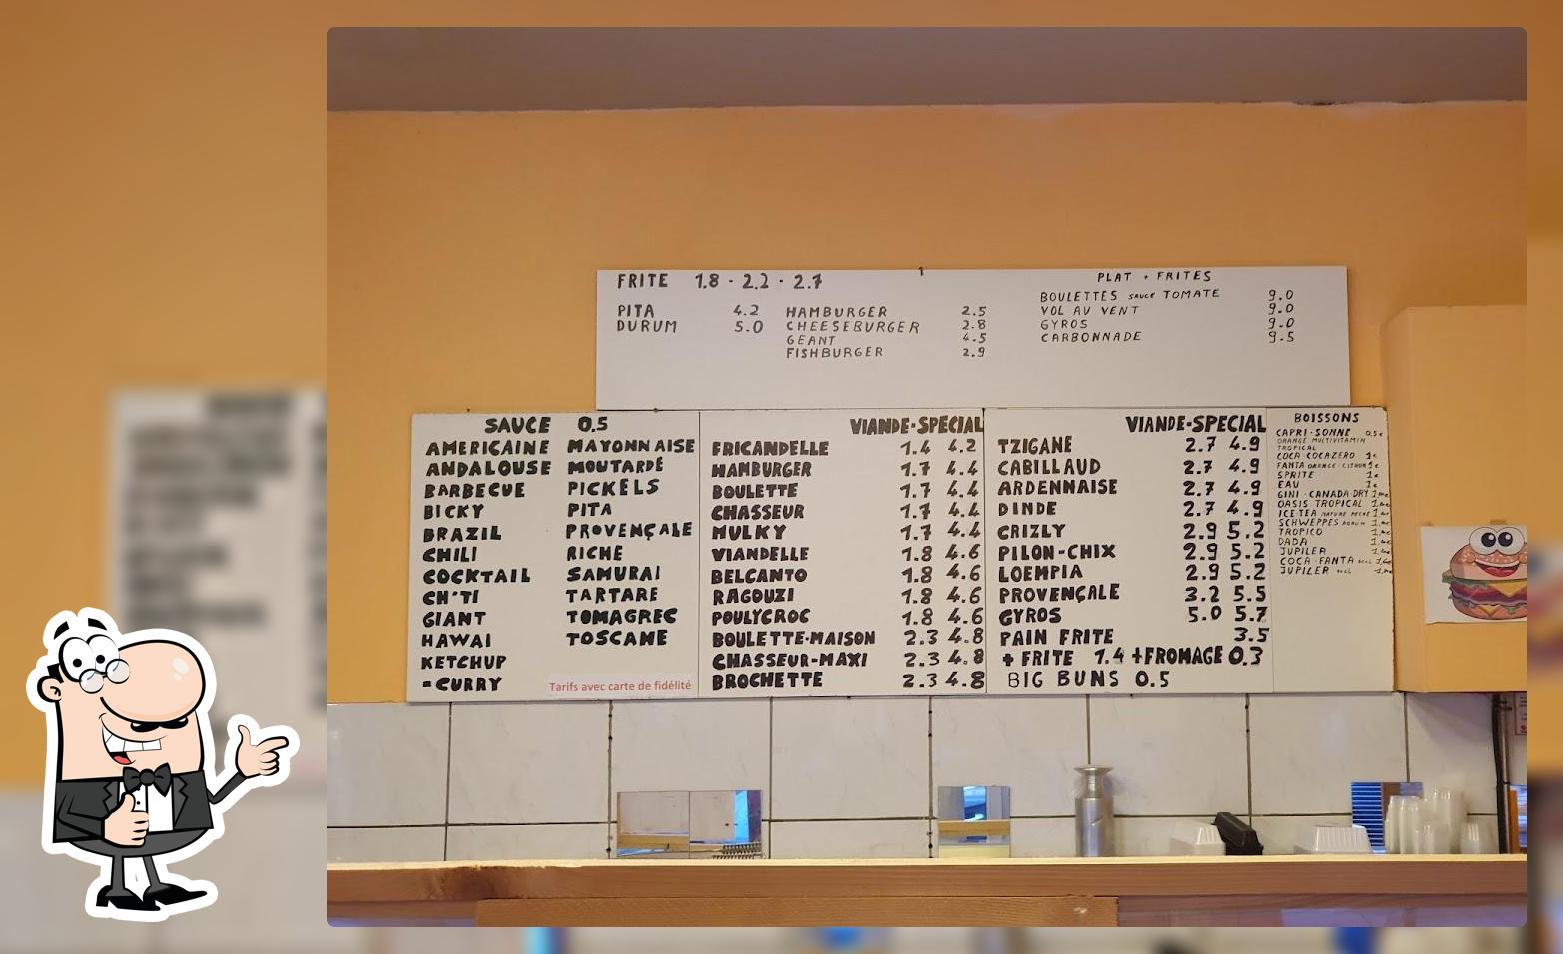 FRITE 1.8 - 2.2 - 2.7
PITA 4.2
DURUM 5.0
HAMBURGER 2.5
CHEESEBURGER 2.8
GEANT 4.5
FISHBURGER 2.9
PLAT + FRITES
BOULETTES SAUCE TOMATE 9.0
VOL AU VENT 9.0
GYROS 9.0
CARBONNADE 9.5
SAUCE 0.5
AMERICAINE MAYONNAISE
ANDALOUSE MOUTARDE
BARBECUE PICKELS
BICKY PITA
BRAZIL PROVENÇALE
CHILI RICHE
COCKTAIL SAMURAI
CH'TI TARTARE
GIANT TOMAGREC
HAWAI TOSCANE
KETCHUP
-CURRY
Tarifs avec carte de fidélité
VIANDE-SPECIAL
FRICANDELLE 1.4 4.2
HAMBURGER 1.7 4.4
BOULETTE 1.7 4.4
CHASSEUR 1.7 4.4
MULKY 1.7 4.4
VIANDELLE 1.8 4.6
BELCANTO 1.8 4.6
RAGOUZI 1.8 4.6
POULYCROC 1.8 4.6
BOULETTE-MAISON 2.3 4.8
CHASSEUR-MAXI 2.3 4.8
BROCHETTE 2.3 4.8
VIANDE-SPECIAL
TZIGANE 2.7 4.9
CABILLAUD 2.7 4.9
ARDENNAISE 2.7 4.9
DINDE 2.7 4.9
CRIZLY 2.9 5.2
PILON-CHIX 2.9 5.2
LOEMPIA 2.9 5.2
PROVENÇALE 3.2 5.5
GYROS 5.0 5.7
PAIN FRITE 3.5
+ FRITE 1.4 +FROMAGE 0.3
BIG BUNS 0.5
BOISSONS
CAPRI-SONNE 0.5€
ORANGE MULTIVITAMIN
TROPICAL
COCA COCAZERO 1€
FANTA ORANGE-CITRON 1€
SPRITE 1€
EAU 1€
GINI-CANADA DRY
OASIS TROPICAL
ICE TEA NATURE PECHE
SCHWEPPES AGRUM
TROPICO
DADA
JUPILER
COCA-FANTA
JUPILER